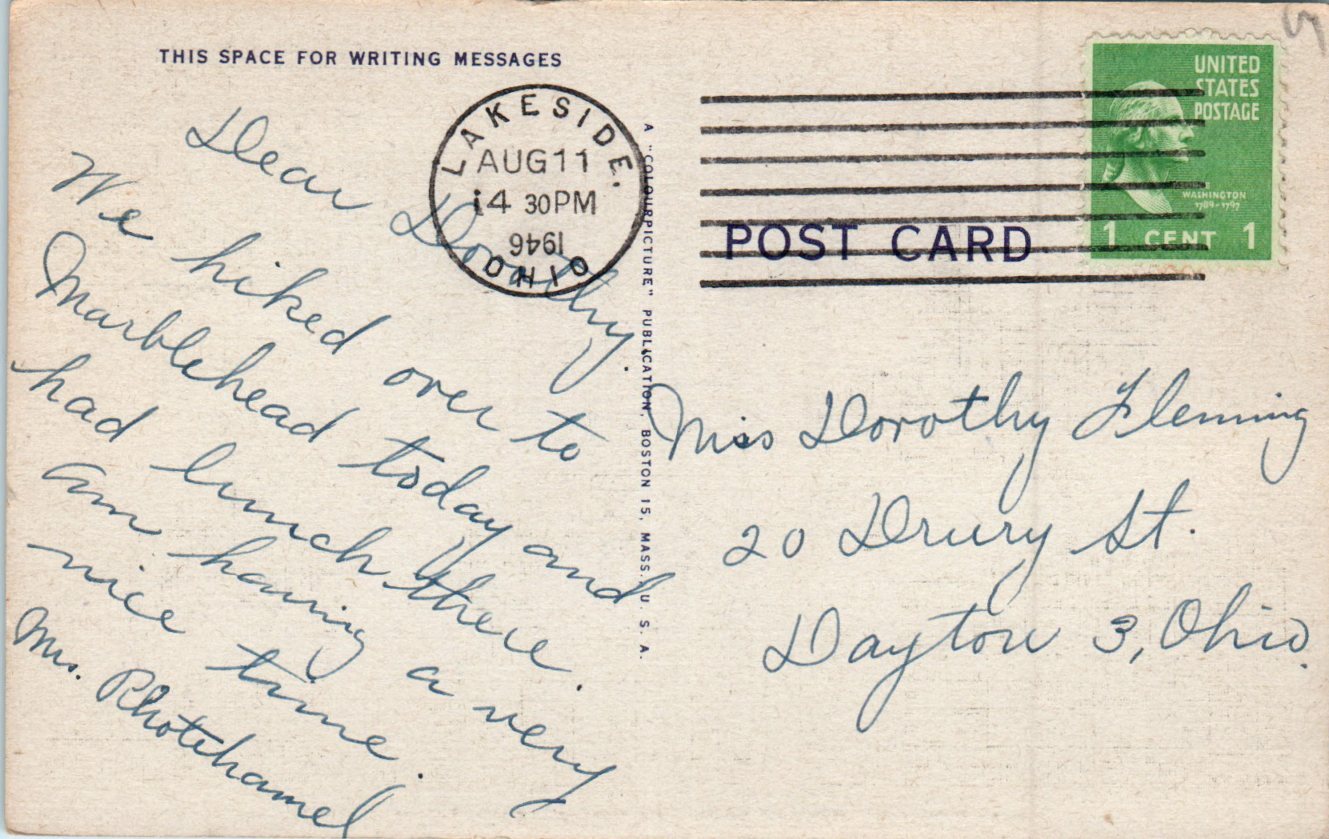 THIS SPACE FOR WRITING MESSAGES
Dear Dorothy,
We hiked over to
Marblehead today and
had lunch there.
Am having a very
nice time.
Mrs. Rhotehamel
LAKESIDE,
AUG 11
4 30 PM
1946
OHIO
A "COLOURPICTURE" PUBLICATION, BOSTON 15, MASS., U. S. A.
POST CARD
UNITED
STATES
POSTAGE
WASHINGTON
1789-1797
1 CENT 1
Miss Dorothy Fleming
20 Drury St.
Dayton 3, Ohio.